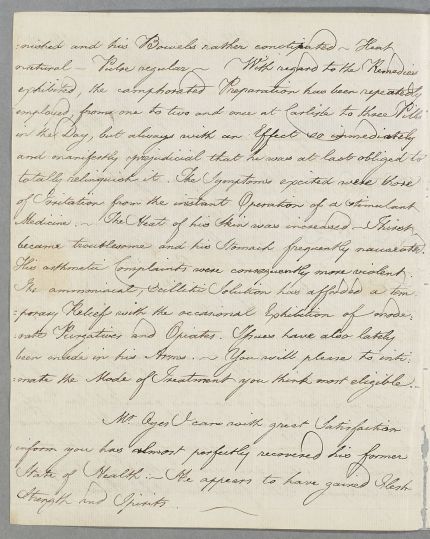 :nished and his Bowels rather constipated ~ Heat
natural ~ Pulse regular ~ With regard to the Remedies
exhibited, the camphorated Preparation has been repeatedly
employed, from one to two and once at Carlisle to three Pills
in the Day, but always with an Effect so immediately
and manifestly prejudicial that he was at last obliged to
totally relinquish it. The Symptoms excited were those
of Irritation from the instant Operation of a stimulant
Medicine. ~ The Heat of his Skin was increased ~ Thirst
became troublesome and his Stomach frequently nauseated.
His asthmatic Complaints were consequently more violent.
The ammoniacal, Scilletic Solution has afforded a tem
:porary Relief with the occasional Exhibition of mode:
:rate Purgatives and Opiates. Issues have also lately
been made in his Arms. ~ You will please to inti:
:mate the Mode of Treatment you think most eligible. ~
Mr. Oges I can with great Satisfaction
inform you has almost perfectly recovered his former
State of Health. ~ He appears to have gained Flesh
Strength and Spirits.